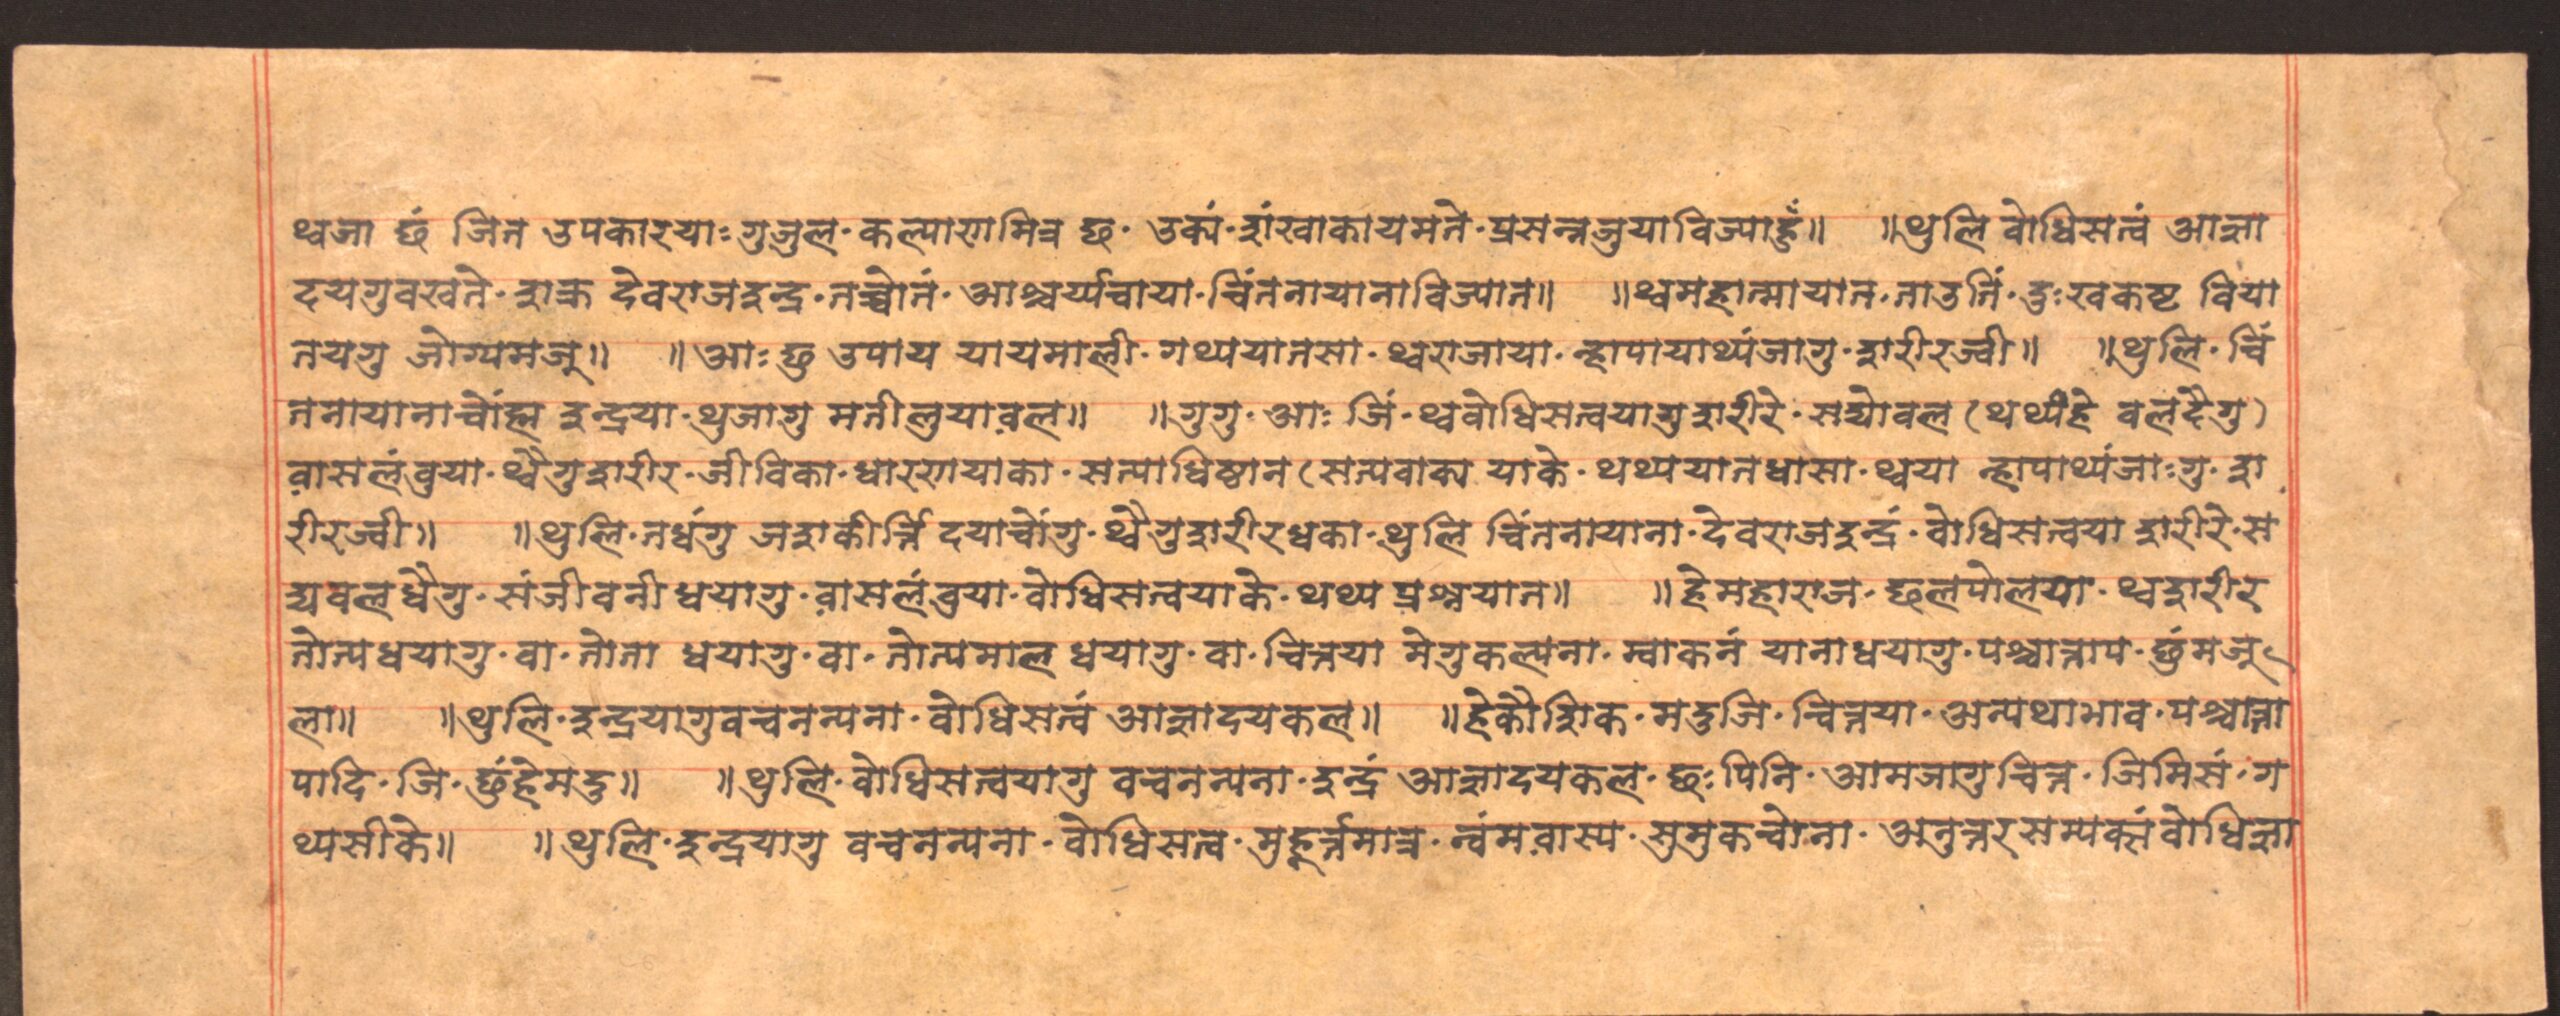 थ्वजा छं जित उपकारयाः गुजुल· कल्याणमित्र छ· उक्यं· शंखाकायमते· प्रसन्नजुयाविज्याहुँ॥ ॥थुलि बोधिसत्वं आज्ञा
दयगुवखते· शक्र देवराजइन्द्र· तच्वोतं· आश्चर्य्यचाया· चिंतनायानाविज्यात॥ ॥थ्वमहात्मायात· नाउतिं· दुःखकष्ट विया
तयगु जोग्यमजू॥ ॥आः छु उपाय यायमाली· गथ्ययातसा· थ्वराजाया· न्हापायाथ्यंजागु· शरीरज्वी॥ ॥थुलि· चिं
तनायानाचोंह्म इन्द्रया· थुजागु मतीलुयावल॥ ॥गुगु· आः जिं· थ्ववोधिसत्वयागुशरीरे· सद्योवल (थथ्यंहे वलदैगु)
वासलंवुया· थ्वैगुशरीर· जीविका· धारणयाका· सत्याधिष्ठान (सत्यवाक्य याके· थथ्ययातधासा· थ्वया न्हापाथ्यंजाःगु· श
रीरज्वी॥ ॥थुलि· तधंगु जशकीर्त्ति दयाचोंगु· थ्वैगुशरीरधका· थुलि चिंतनायाना· देवराजइन्द्रं· वोधिसत्वया शरीरे· स
द्यवलधैगु· संजीवनी धयागु· वासलंवुया· वोधिसत्वयाके· थथ्य प्रश्नयात॥ ॥हेमहाराज· छलपोलया· थ्वशरीर
तोत्यधयागु· वा· तोता धयागु· वा· तोत्यमाल धयागु· वा· चित्तया मेगुकल्पना· म्वाकनं यानाधयागु· पश्चात्ताप· छुंमजू
ला॥ ॥थुलि· इन्द्रयागुवचनन्यना· वोधिसत्वं आज्ञादयकल॥ ॥हेकौशिक· मदुजि· चित्तया· अन्यथाभाव· पश्चात्ता
पादि· जि· छुंहेमदु॥ ॥थुलि· वोधिसत्वयागु वचनन्यना· इन्द्रं आज्ञादयकल· छः पिनि· आमजागुचित्त· जिमिसं· ग
थ्यसीके॥ ॥थुलि· इन्द्रयागु वचनन्यना· वोधिसत्व· मुहूर्त्तमात्र· न्वंमवास्य· सुमुकच्वोना· अनुत्तरसम्यक्संवोधिज्ञा